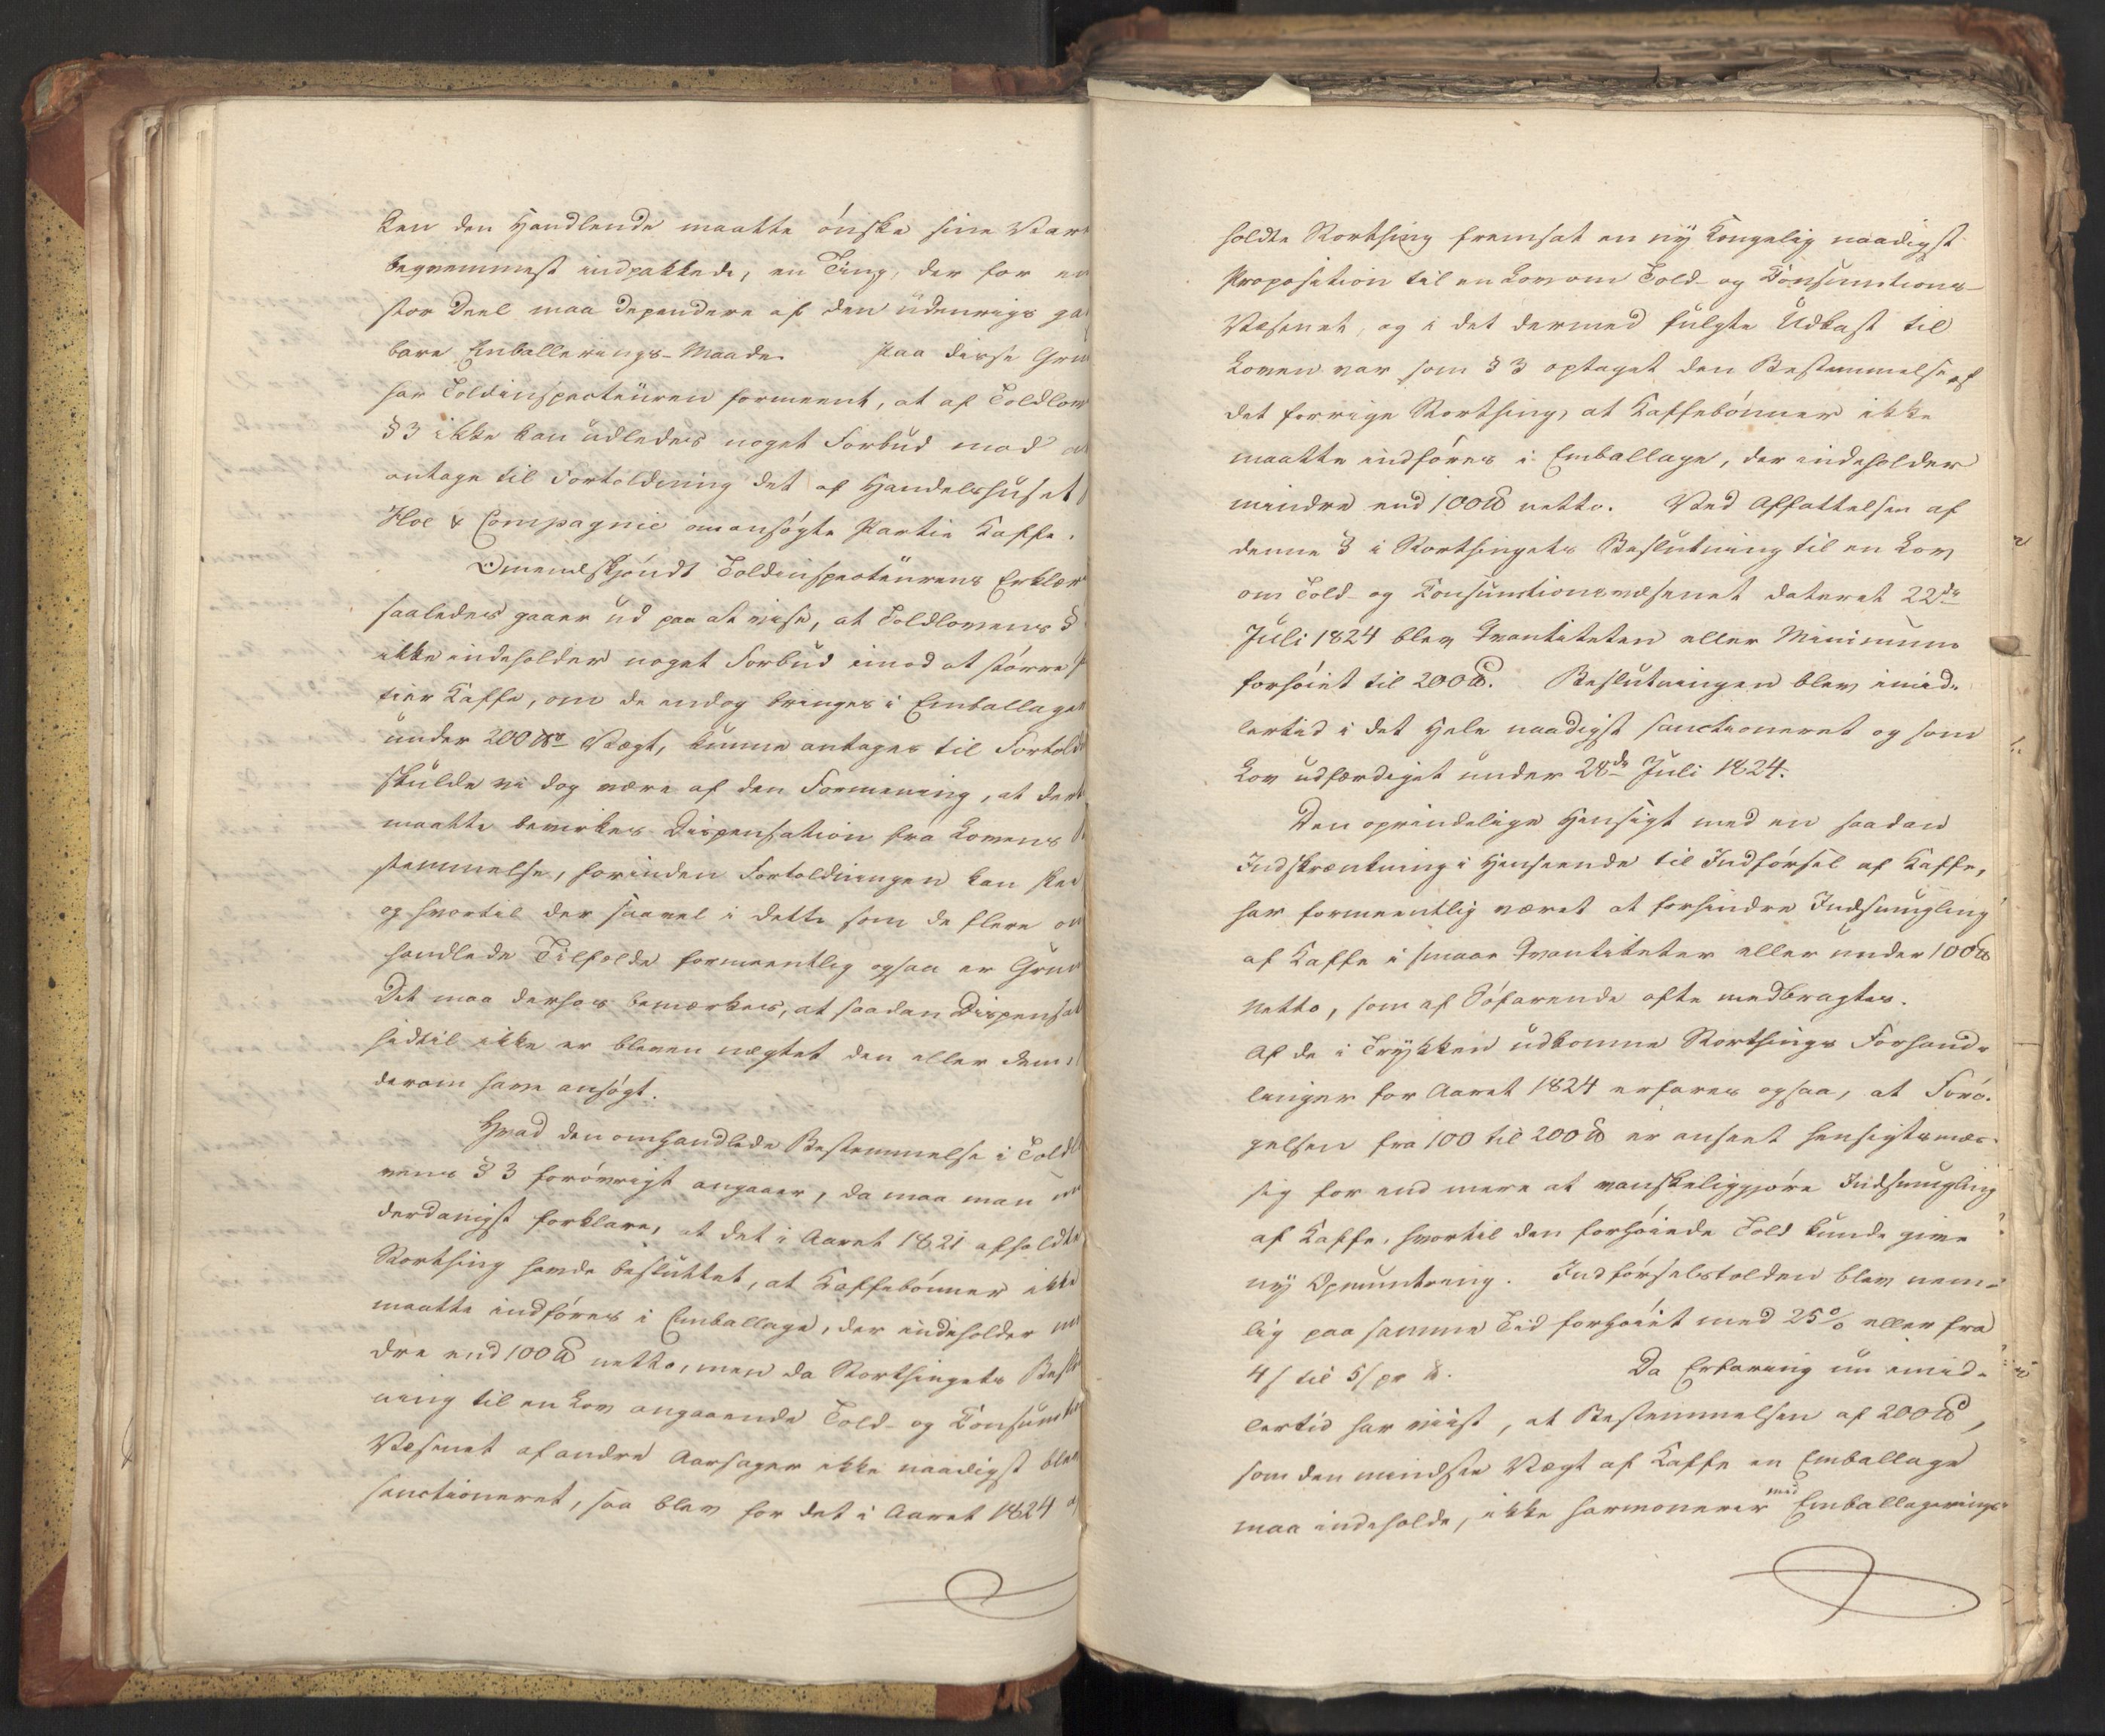 ken den Handlende maatte ønske sine Var
beqvemmest indpakkede, en Ting, der for en
stor Deel maa dependere af den udenrigs
bare Emballerings-Maade. Paa disse Gru
har Toldinspecteuren formeent, at af Toldlov
§ 3 ikke kan udledes noget Forbud mod a
antage til Fortoldning det af Handelshuset
Hoe & Compagnie omansøgte Partie Kaffe.
Omendskjøndt Toldinspecteurens Erklær
saaledes gaaer ud paa at vise, at Toldlovens §
ikke indeholder noget Forbud imod at større
tier Kaffe, om de endog bringes i Emballage
under 200 ℔ Vægt, kunne antages til Fortold
skulde vi dog være af den Formening, at der
maatte bevirkes Dispensation fra Lovens
stemmelse, forinden Fortoldningen kan skee
og hvortil der saavel i dette som de flere om
handlede Tilfælde formeentlig ogsaa er Grun
Det maa derhos bemærkes, at saadan Dispensat
hidtil ikke er bleven nægtet den eller dem,
derom have ansøgt.
Hvad den omhandlede Bestemmelse i Toldl
vens § 3 forøvrigt angaaer, da maa man un
derdanigst forklare, at det i Aaret 1821 afholdte
Storthing havde besluttet, at Kaffebønner ikke
maatte indføres i Emballage, der indeholder min
dre end 100 ℔ netto, men da Storthingets Beslut
ning til en Lov angaaende Told- og Consumtio
Væsenet af andre Aarsager ikke naadigst blev
sanctioneret, saa blev for det i Aaret 1824 a
holdte Storthing fremsat en ny Kongelig naadigst
Proposition til en Lov om Told- og Consumtions-
Væsenet, og i det dermed fulgte Udkast til
Loven var som § 3 optaget den Bestemmelse af
det forrige Storthing, at Kaffebønner ikke
maatte indføres i Emballage, der indeholder
mindre end 100 ℔ netto. Ved Affattelsen af
denne § i Storthingets Beslutning til en Lov
om Told- og Consumtionsvæsenet dateret 22de
Juli 1824 blev Qvantiteten eller Minimum
forhøiet til 200 ℔. Beslutningen blev imid-
lertid i det Hele naadigst sanctioneret og som
Lov udfærdiget under 28de Juli 1824.
Den oprindelige Hensigt med en saadan
Indskrænkning i Henseende til Indførsel af Kaffe,
har formeentlig været at forhindre Indsmugling
af Kaffe i smaae Qvantiteter eller under 100 ℔
Netto, som af Søfarende ofte medbragtes.
Af de i Trykken udkomne Storthings Forhand-
linger for Aaret 1824 erfares ogsaa, at Forø-
gelsen fra 100 til 200 ℔ er anseet hensigtsmæs-
sig for end mere at vanskeliggjøre Indsmugling
af Kaffe, hvortil den forhøiede Told kunde give
ny Opmuntring. Indførselstolden blev nem-
lig paa samme Tid forhøiet med 25 % eller fra
4 ſ til 5 ſ pr ℔. Da Erfaring nu imid-
lertid har viist, at Bestemmelsen af 200 ℔,
som den mindste Vægt af Kaffe en Emballage
maa indeholde, ikke harmonerer med Emballagerings-